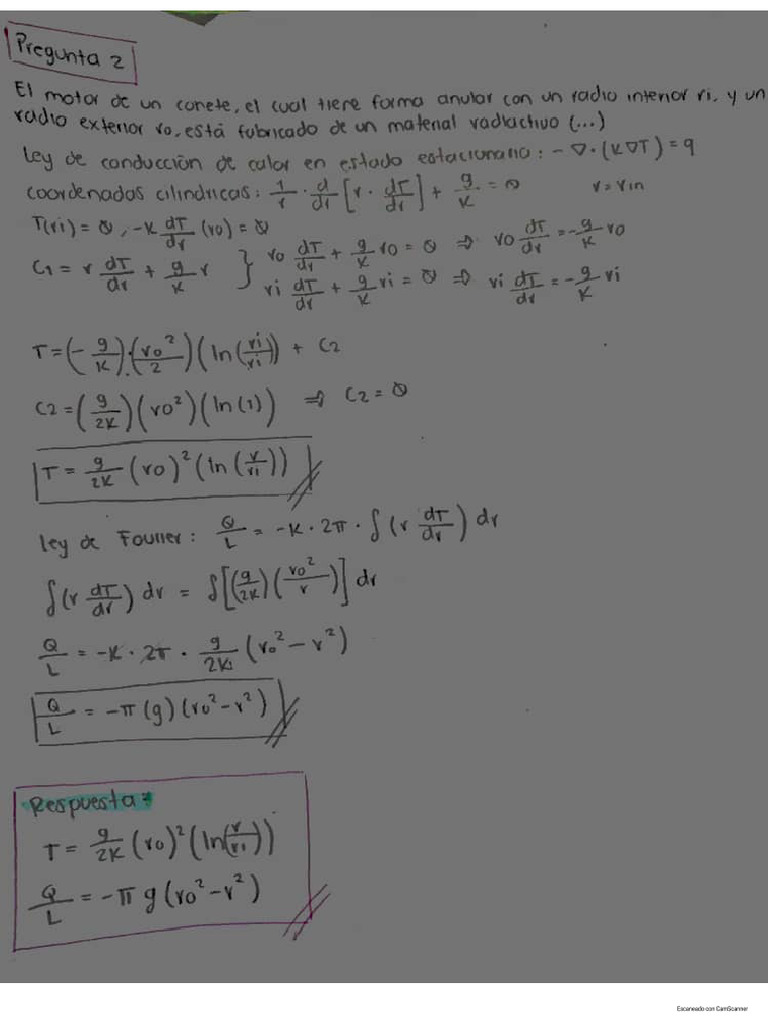 Pregunta 2
El motor de un conete, el cual tiene forma anular con un radio interior ri, y un
radio exterior ro, está fabricado de un material radiactivo (...)
Ley de conducción de calor en estado estacionario: -∇·(K∇T) = q
coordenadas cilindricas: 1/r · d/dr [r · dT/dr] + g/K = 0 r = rin
T(ri) = 0, -K dT/dr (ro) = 0
C1 = r dT/dr + g/K r } ro dT/dr + g/K ro = 0 ⇒ ro dT/dr = -g/K ro
ri dT/dr + g/K ri = 0 ⇒ ri dT/dr = -g/K ri
T = (-g/K)·(ro²/2)(ln(ri/ri)) + C2
C2 = (g/2K)(ro²)(ln(1)) ⇒ C2 = 0
T = g/2K (ro)² (ln(r/ri))
ley de Fourier: Q/L = -K · 2π · ∫(r dT/dr) dr
∫(r dT/dr) dr = ∫[(g/2K)(ro²/r)] dr
Q/L = -K · 2π · g/2K (ro² - r²)
Q/L = -π (g) (ro² - r²)
Respuesta:
T = g/2K (ro)² (ln(r/ri))
Q/L = -π g (ro² - r²)
Escaneado con CamScanner